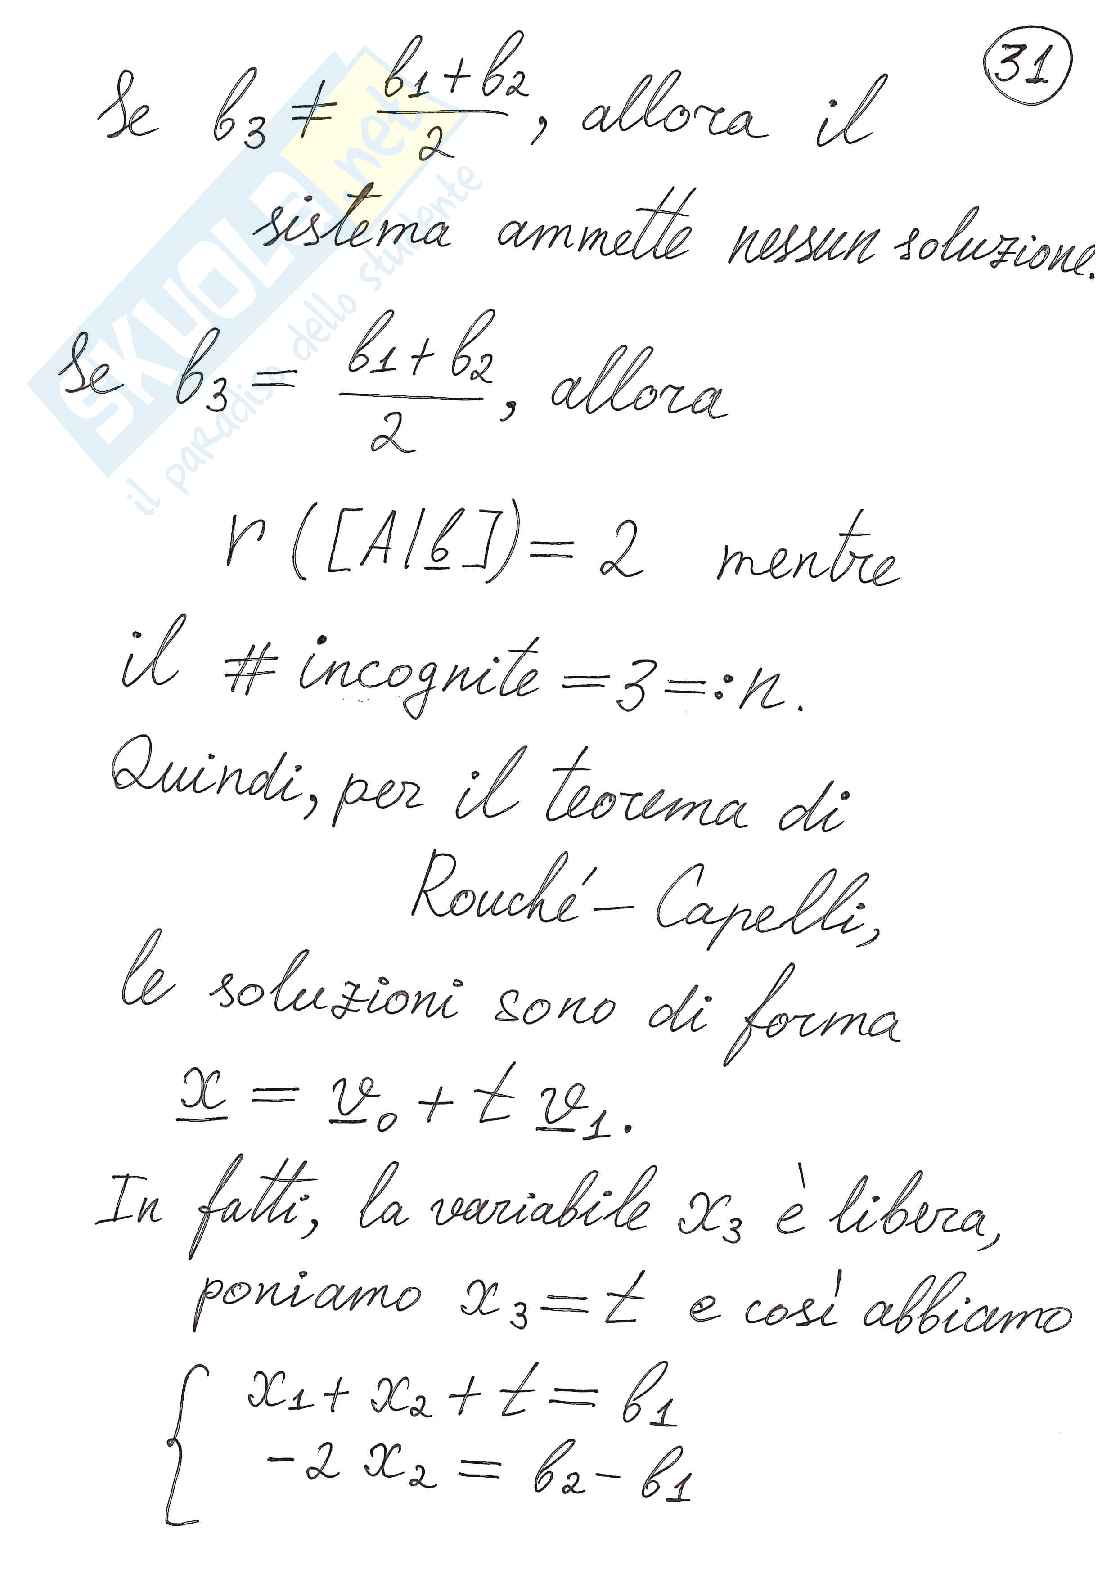 31
Se b₃ ≠ (b₁+b₂)/2, allora il
sistema ammette nessun soluzione.
Se b₃ = (b₁+b₂)/2, allora
r([A|b̲]) = 2 mentre
il # incognite = 3 =: n.
Quindi, per il teorema di
Rouché – Capelli,
le soluzioni sono di forma
x̲ = v̲₀ + t v̲₁.
In fatti, la variabile x₃ è libera,
poniamo x₃ = t e così abbiamo
{ x₁ + x₂ + t = b₁
-2 x₂ = b₂ - b₁
SKUOLA.net
il paradiso dello studente